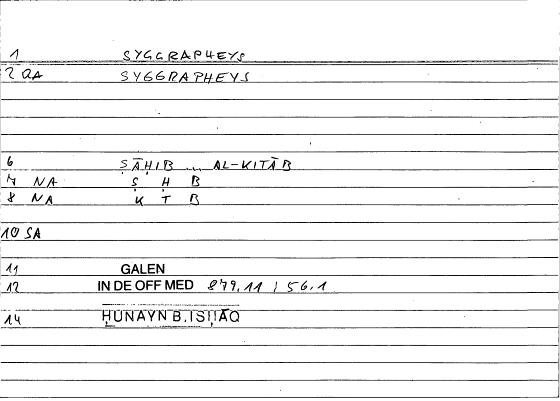 1 SYGGRAPHEYS
2 QA SYGGRAPHEYS
6 ṢĀḤIB ... AL-KITĀB
7 NA Ṣ Ḥ B
8 NA K T B
10 SA
11 GALEN
12 IN DE OFF MED 879,11 / 56.1
14 ḤUNAYN B. ISḤĀQ